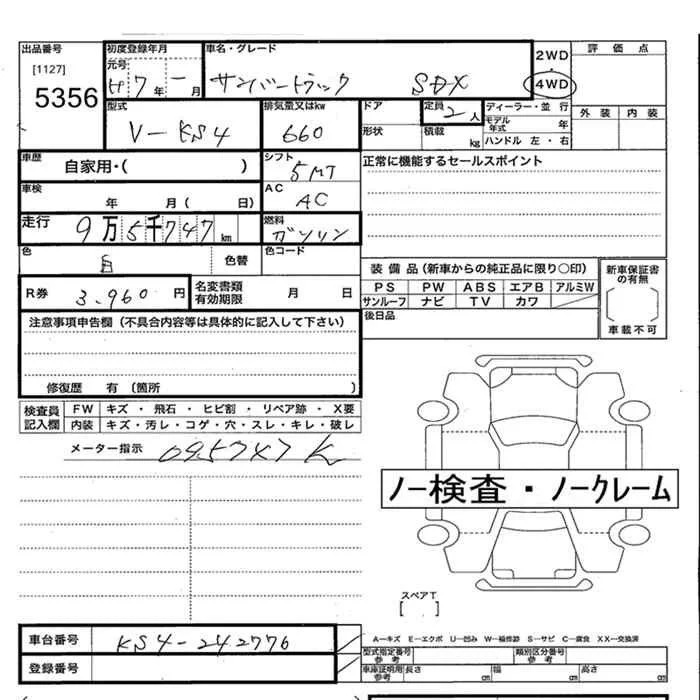 出品番号 初度登録年月 車名・グレード 2WD 評価点
[1127] 元号
5356 H7年 一月 サンバートラック SDX 4WD
型式 排気量又はkw ドア 定員 2人 ディーラー・並行 外装 内装
V-KS4 660 形状 積載 kg モデル年式 年
ハンドル 左・右
車歴 自家用・( ) シフト 5MT 正常に機能するセールスポイント
車検 年 月( 日) AC AC
走行 9万5千747km 燃料 ガソリン
色 白 色替 色コード
装備品(新車からの純正品に限り○印) 新車保証書の有無
R券 3.960円 名変書類有効期限 月 日 PS PW ABS エアB アルミW
サンルーフ ナビ TV カワ
注意事項申告欄(不具合内容等は具体的に記入して下さい) 後日品 車載不可
修復歴 有(箇所 )
検査員記入欄 FW キズ・飛石・ヒビ割・リペア跡・X要
内装 キズ・汚レ・コゲ・穴・スレ・キレ・破レ
メーター指示 095747K
ノー検査・ノークレーム
スペアT
[ ]
車台番号 KS4-242776 A−キズ E−エクボ U−凹み W−補修跡 S−サビ C−腐食 XX−交換済
型式指定番号参考 類別区分番号参考
登録番号 車庫証明用参考 長さ cm 幅 cm 高さ cm